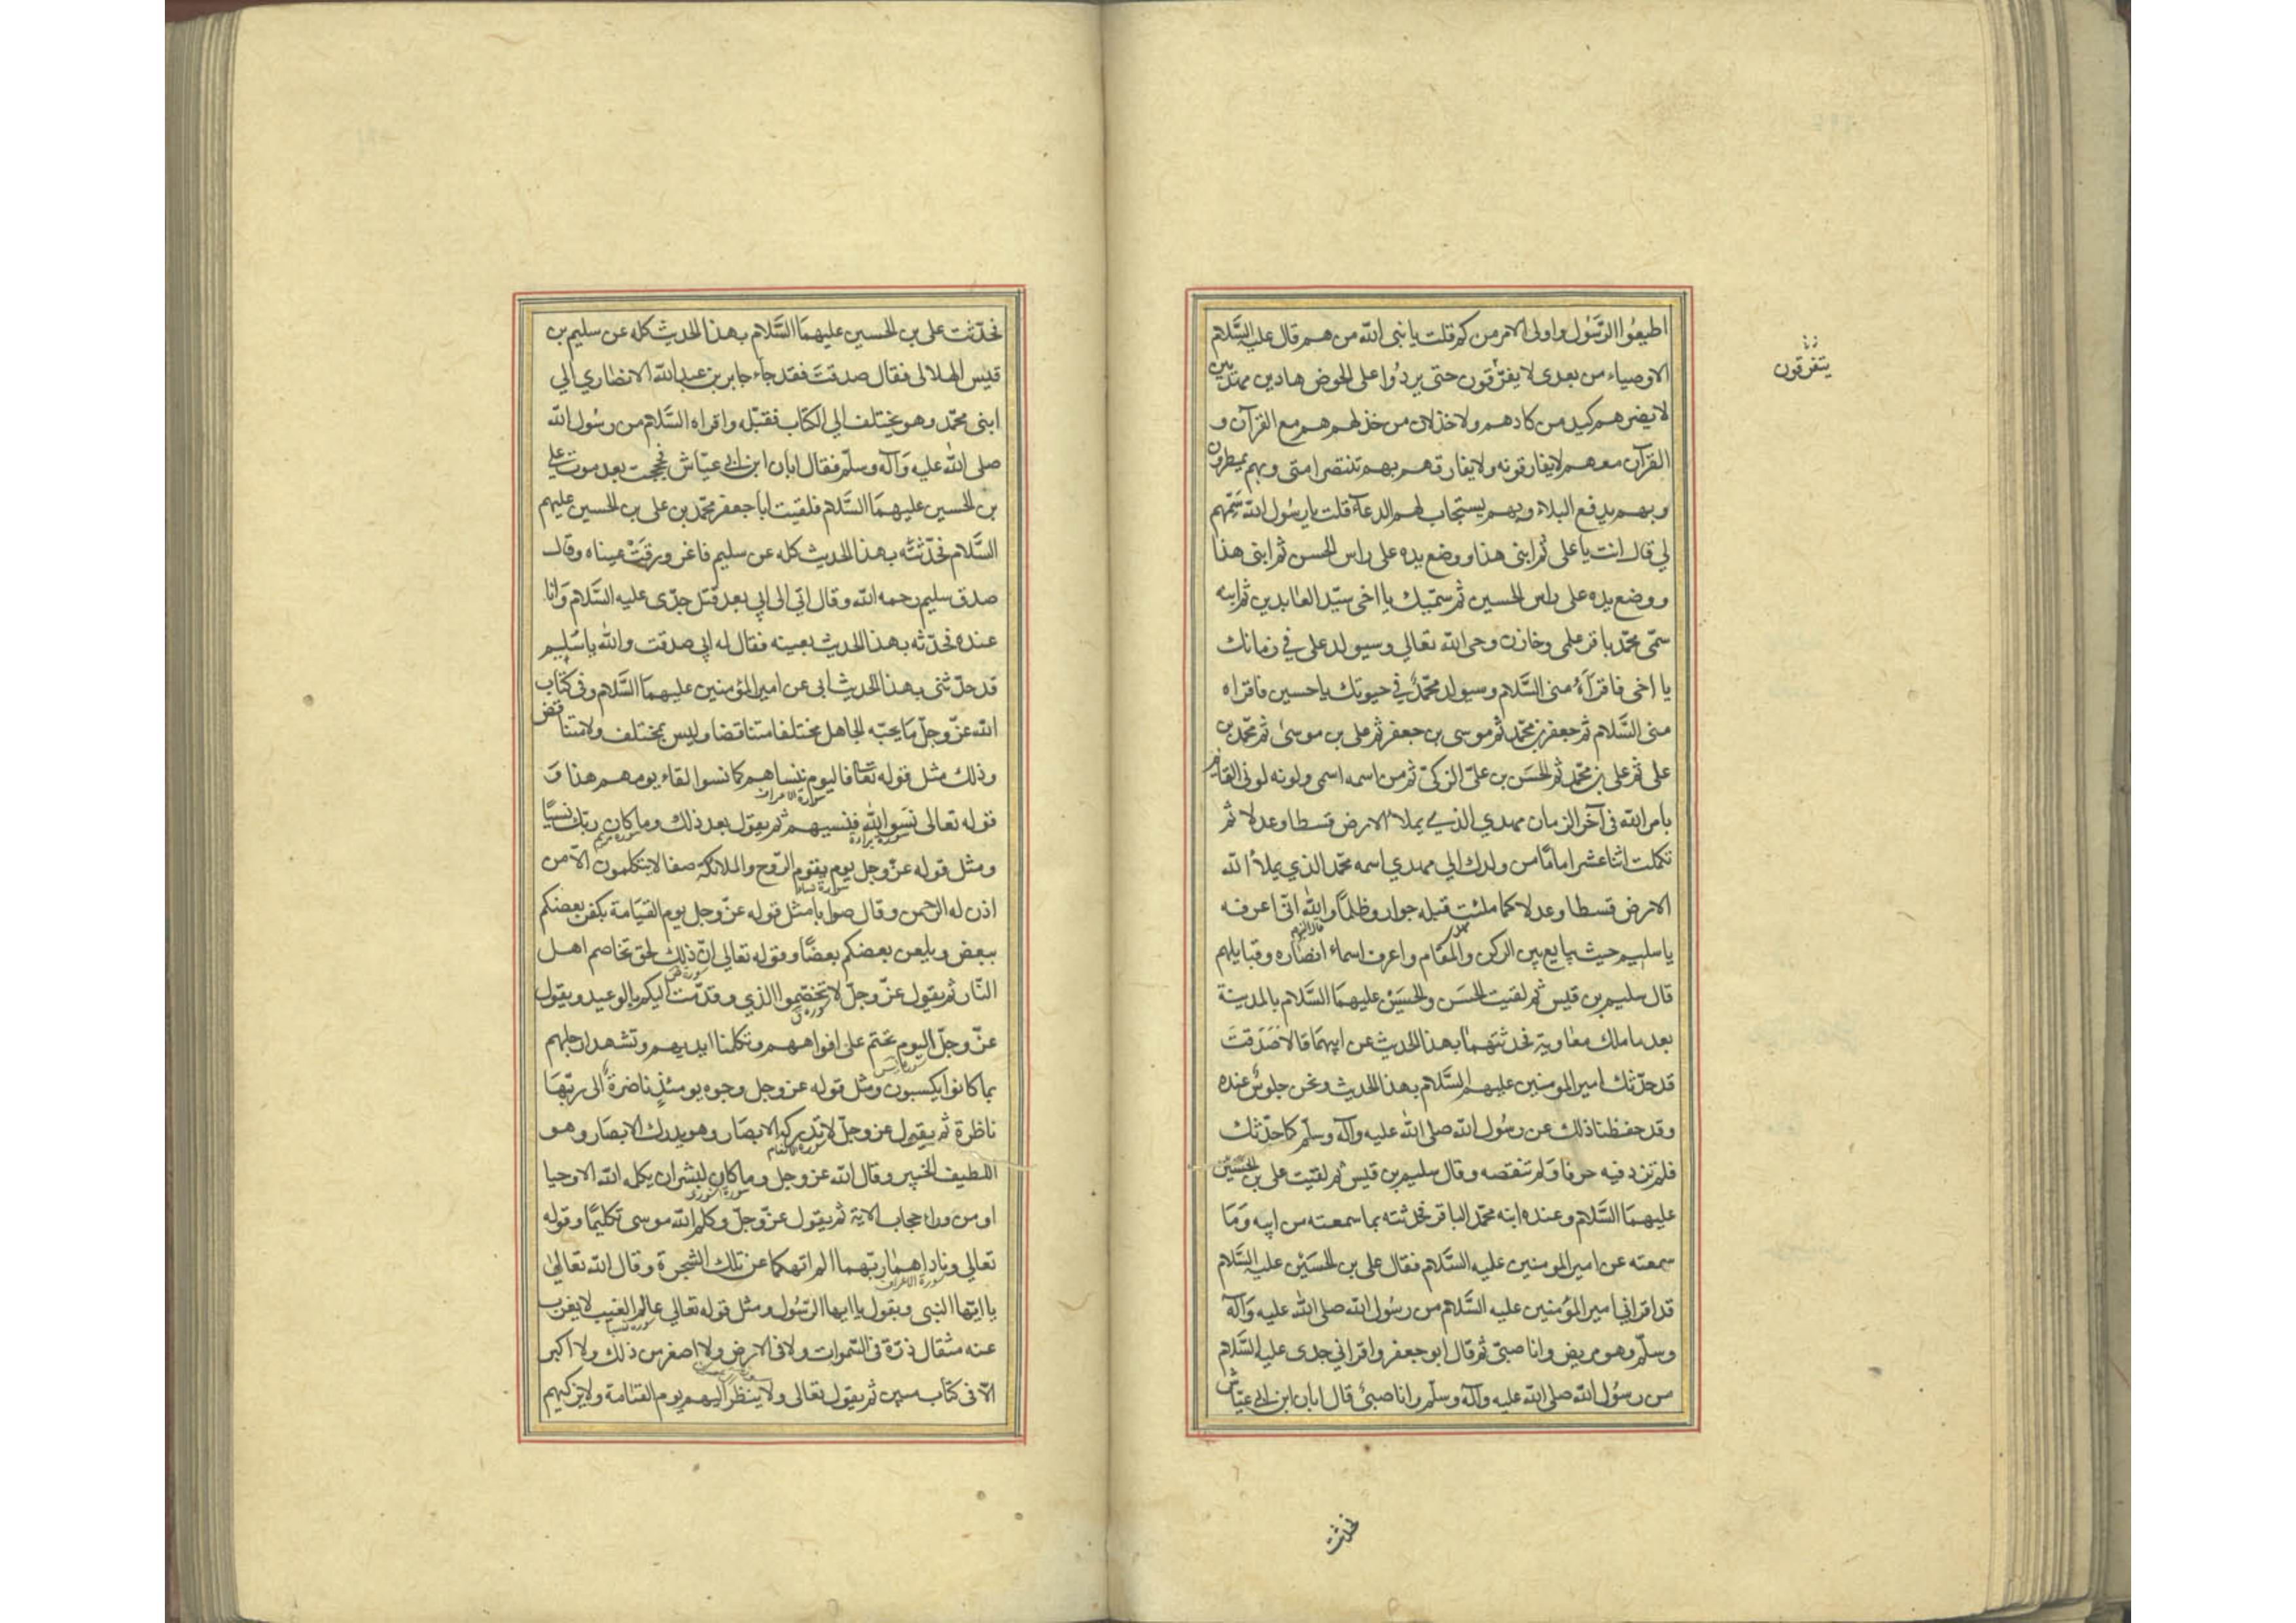 اطيعوا الرّسول واولى الامر منكم قلت يا نبى الله من هم قال عليه السّلام
الاوصياء من بعدى لا يفرّقون حتى يردوا على الحوض هادين مهتدين
لا يضرهم كيد من كادهم ولا خذلان من خذلهم هم مع القرآن و
القرآن معهم لا يفارقونه ولا يفارقهم بهم تنتصر امتى وبهم يمطرون
وبهم يدفع البلاء وبهم يستجاب لهم الدعاء قلت يا رسول الله سمّهم
لي قال انت يا على ثم ابنى هذا ووضع يده على راس الحسن ثم ابنى هذا
ووضع يده على راس الحسين ثم سميّك يا اخى سيّد العابدين ثم ابنه
سمّى محمّد باقر علمى وخازن وحى الله تعالي وسيولد على في زمانك
يا اخى فاقرأه منى السّلام وسيولد محمّد في حيوتك يا حسين فاقراه
منى السّلام ثم جعفر بن محمّد ثم موسى بن جعفر ثم على بن موسىٰ ثم محمّد بن
على ثم على بن محمّد ثم الحسَن بن علىّ الزكىّ ثم من اسمه اسمى ولونه لونى القائم
بامر الله فى آخر الزمان مهدي الذي يملأ الارض قسطا وعدلا ثم
تكملت اثنا عشر امامًا من ولدك الي مهدي اسمه محمّد الذي يملأ الله
الارض قسطا وعدلا كما ملئت قبله جوار وظلمًا والله انّى اعرفه
يا سليم حيث يبايع بين الركن والمقام واعرف اسماء انصاره وقبايلهم
قال سليم بن قيس ثم لقيت الحسَن والحسَيْن عليهمَا السَّلام بالمدينة
بعد ما ملك معاوية فحدثتهما بهذا الحديث عن ابيهمَا قالا صَدَقتَ
قد حدّثك امير المومنين عليهم السَّلام بهذا الحديث ونحن جلوسٌ عنده
وقد حفظنا ذلك عن رسُول الله صلى الله عليه وآله وسلّم كما حدّثك
فلم تزد فيه حرفا وَلم تنقصه وقال سليم بن قيس ثم لقيت على بن الحسَيْن
عليهمَا السَّلام وعنده ابنه محمّد الباقر فحدثته بما سمعته من ابيه وَمَا
سمعته عن امير المومنين عليه السَّلام فقال على بن الحسَيْن عليه السَّلام
قد اقرانى امير المؤمنين عليه السَّلام من رسُول الله صلى الله عليه وَآله
وسلّم وهو مريض وانا صبىّ ثم قال ابو جعفر واقرانى جدى عليه السَّلام
من رسُول الله صلى الله عليه وآله وسلّم وانا صبىّ قال ابان ابن ابى عيّاش
يتفرقون
فحدثت
فحدّثت على بن الحسين عليهمَا السَّلام بهذا الحديث كله عن سليم بن
قيس الهلالى فقال صدقتَ فقد جاء جابر بن عبد الله الانصاري الي
ابنى محمّد وهو يختلف الي الكتاب فقبّله واقراه السَّلام من رسُول الله
صلى الله عليه وَآله وسلّم فقال ابان ابن ابى عيّاش فحججت بعد موت على
بن الحسين عليهمَا السَّلام فلقيت ابا جعفر محمّد بن على بن الحسين عليهم
السَّلام فحدّثته بهذا الحديث كله عن سليم فاغرورقتْ عيناه وقال
صدق سليم رحمه الله وقال اتى الى ابي بعد قتل جدّى عليه السَّلام وَانا
عنده فحدّثه بهذا الحديث بعينه فقال له ابي صدقت والله يا سُليم
قد حدّثنى بهذا الحديث ابى عن امير المؤمنين عليهمَا السَّلام وفى كتاب
الله عزّ وجلّ مَا يحبّه الجاهل مختلفا متناقضا وليس بمختلف ولا متناقض
وذلك مثل قوله تعا فاليوم ننساهم كما نسوا لقاء يومهم هذا وَ
سورة الاعراف
قوله تعالى نسَوا الله فنسيهم ثم يقول بعد ذلك وما كان ربّك نسيًّا
سورة براءة سورة مريم
ومثل قوله عزّ وجل يوم يقوم الرّوح والملائكة صفا لا يتكلمون الّا من
سورة نبا
اذن له الرحمن وقال صوابا مثل قوله عزّ وجل يوم القيَامة يكفر بعضكم
ببعض ويلعن بعضكم بعضًا وقوله تعالى انّ ذلك لحق تخاصم اهل
سورة ص
النّار ثم يقول عزّ وجلّ لا تختصموا الذي وقد قدّمت اليكم بالوعيد ويقول
سورة ق
عزّ وجلّ اليوم نختم على افواههم وتكلمنا ايديهم وتشهد ارجلهم
سورة يس
بما كانوا يكسبون ومثل قوله عز وجل وجوه يومئذٍ ناضرةٌ الى ربّهَا
ناظرة ثم يقول عز وجلّ لا تدركه الابصَار وهو يدرك الابصَار وهو
سورة الانعام
اللطيف الخبير وقال الله عز وجل وما كان لبشر ان يكلمه الله الا وحيا
سورة الشورى
او من وراء حجاب الاية ثم يقول عزّ وجلّ وكلم الله موسى تكليمًا وقوله
تعالي وناداهمَا ربّهما الم انهكما عن تلك الشجرة وقال الله تعالىٰ
سورة الاعراف
يا ايّها النبى ويقول يا ايها الرّسُول ومثل قوله تعالي عالم الغيب لا يعزب
سورة سبا
عنه مثقال ذرّة فى السّموات ولا فى الارض ولا اصغر من ذلك ولا اكبر
الّا فى كتاب مبين ثم يقول تعالى ولا ينظر اليهم يوم القيامة ولا يزكيهم